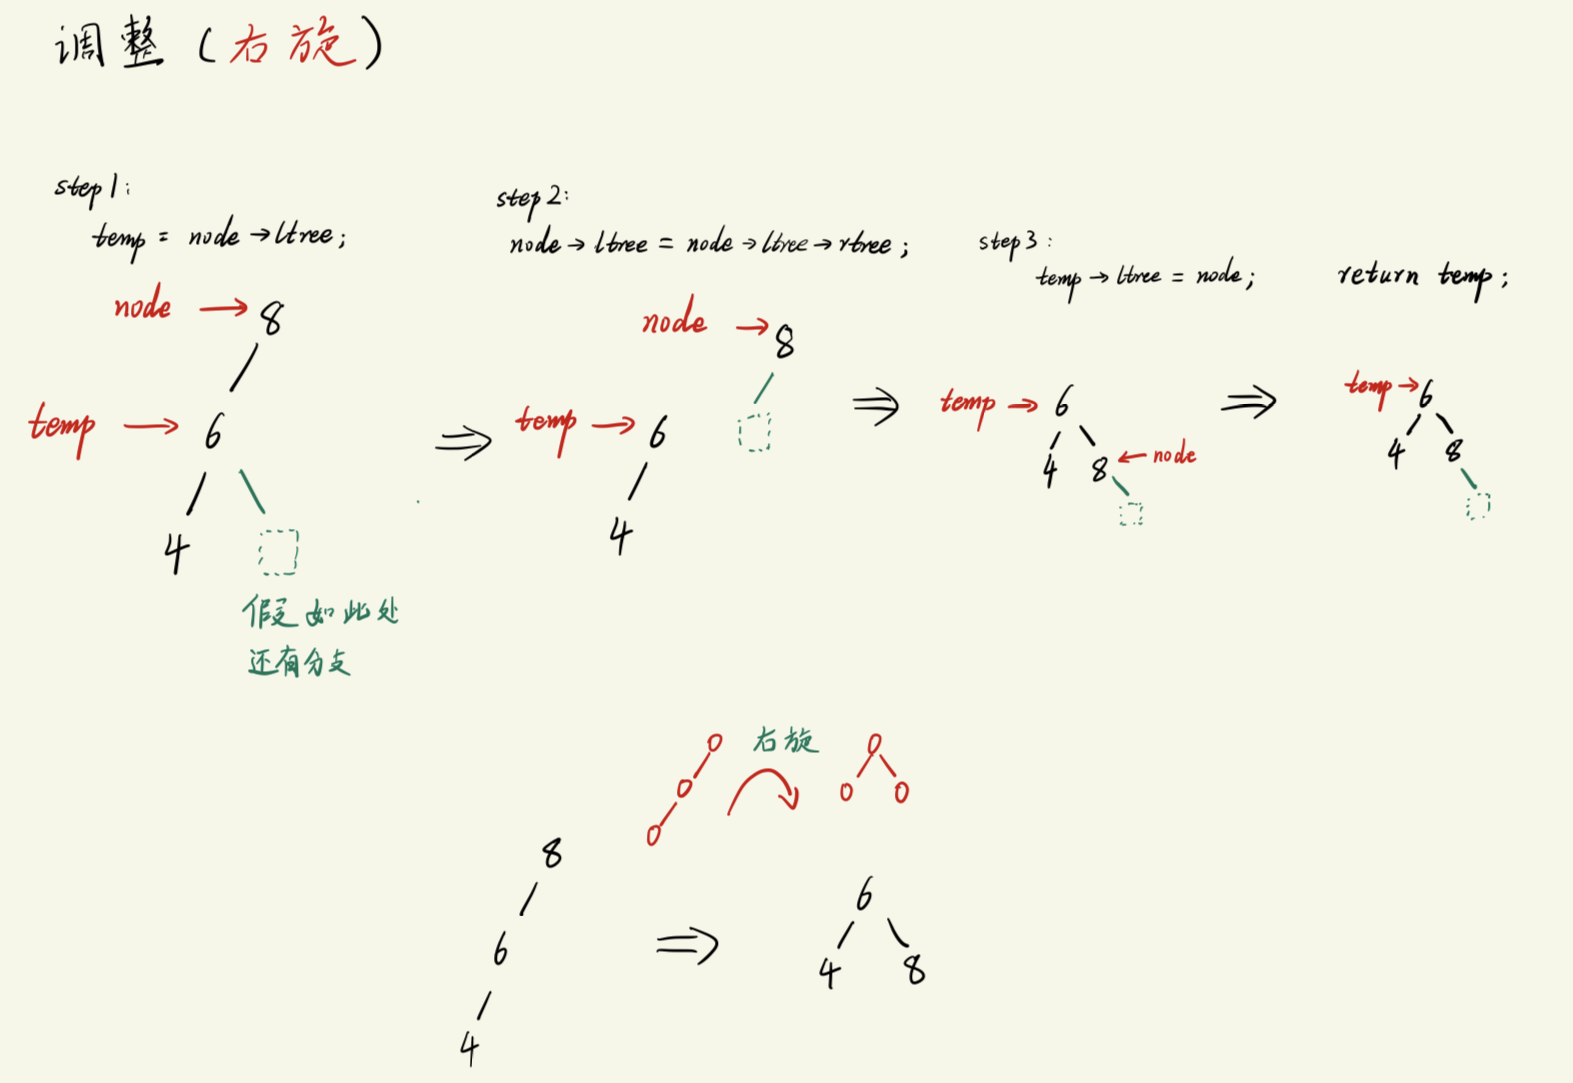 调整(右旋)
step1:
temp = node→ltree;
node → 8
temp → 6
4
假定如此处
还有分支
step2:
node→ltree = node→ltree→rtree;
node → 8
temp → 6
4
step3:
temp→ltree = node;
temp → 6
4 8 ← node
return temp;
temp → 6
4 8
右旋
8
6
4
6
4 8